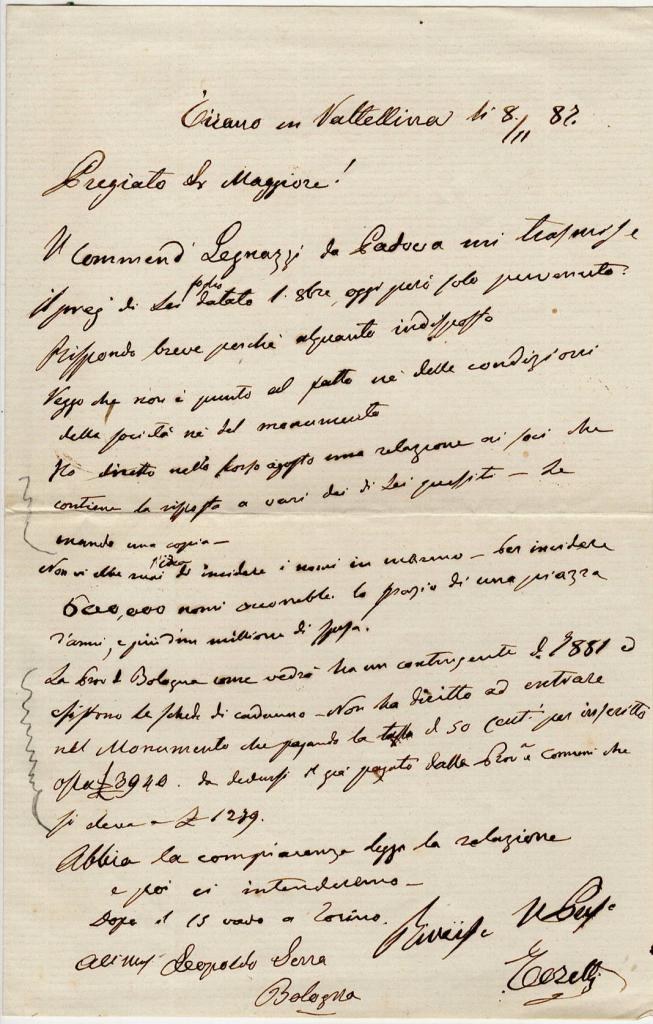 Tirano in Valtellina li 8/11 87.
Pregiato Sr Maggiore!
Il Commend Legnazzi da Padova mi trasmise
il preg di Lei foglio datato 1. 8bre, oggi però solo pervenuto.
Rispondo breve perchè alquanto indisposto
Veggo che non è punto al fatto nè delle condizioni
della società nè del monumento
Ho diretto nello scorso agosto una relazione ai soci che
contiene la risposta a vari dei di Lei quesiti - Le
mando una copia -
Non vi ebbe mai l'idea di incidere i nomi in marmo - Per incidere
600,000 nomi lo spazio di una piazza
d'armi, e più d'un millione di spesa.
La Prov di Bologna come vedrà ha un contingente di 7881 e
esistono le schede di cadauno - Non ha diritto ad entrare
nel Monumento che pagando la tassa di 50 centi per inscritto
ossia £ 3940. da dedursi il già pagato dalla Prova e comuni che
si eleva a £ 1239.
Abbia la compiacenza legga la relazione
e poi ci intenderemo -
Dopo il 15 vado a Torino.
All Leopoldo Serra
Bologna
Il